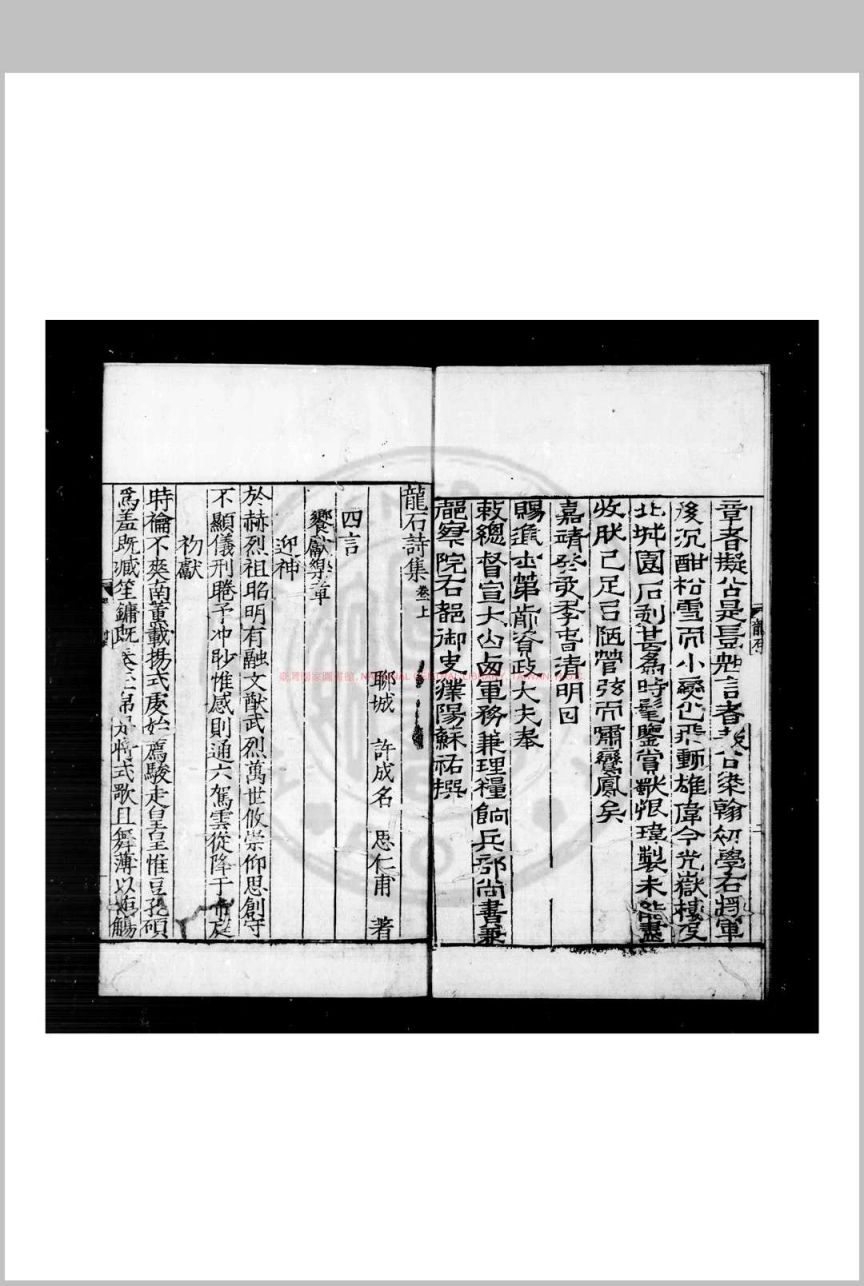 章者擬公是豈勉言者哉公染翰初學右將軍
後沉酣松雪而小變之飛動雄偉今光嶽樓及
北城園石刻甚為時髦鑒賞獸恨瑋製未能盡
收肰已足召陋管弦而嘯鸞鳳矣
嘉靖癸亥季春清明日
賜進士第前資政大夫奉
敕總督宣大山西軍務兼理糧餉兵部尚書兼
都察院右都御史濮陽蘇祐撰
龍石
龍石詩集卷上
聊城 許成名 思仁甫 著
四言
饗獻樂章
迎神
於赫烈祖昭明有融文猷武烈萬世攸崇仰思創守
不顯儀刑睠予冲眇惟感則通六駕雲從降于帝庭
初獻
時禴不爽南薰載揚式虔始薦駿走皇皇惟豆孔碩
爲羞既臧笙鏞既 將式歌且舞薄以 觴
臺灣國家圖書館, NATIONAL CENTRAL LIBRARY, TAIWAN